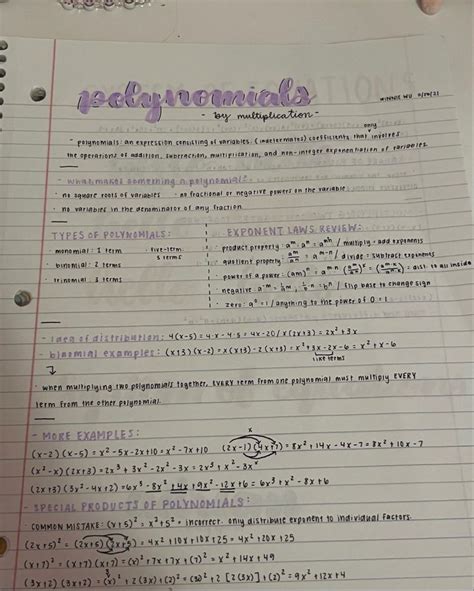 polynomials
- by multiplication -
- polynomials: an expression consisting of variables (indeterminates) coefficients, that only involves
the operations of addition, subtraction, multiplication, and non-integer exponentiation of variables.
- what makes something a polynomial?
· no square roots of variables · no fractional or negative powers on the variable
· no variables in the denominator of any fraction.
TYPES OF POLYNOMIALS:
· monomial: 1 term · five-term:
5 terms
· binomial: 2 terms
· trinomial: 3 terms
EXPONENT LAWS REVIEW:
· product property: / multiply = add exponents
· quotient property: / divide = subtract exponents
· power of a power: = dist. to all inside
· negative: / flip base to change sign
· zero: a⁰ = 1 / anything to the power of 0 = 1
- idea of distribution: 4(x-5) = 4·x - 4·5 = 4x-20 / x(2x+3) = 2x² + 3x
- binomial examples: (x+3)(x-2) = x(x+3) -2(x+3) = x² + 3x - 2x - 6 = x² + x - 6
like terms
↳
· when multiplying two polynomials together, EVERY term from one polynomial must multiply EVERY
term from the other polynomial.
- MORE EXAMPLES:
(x-2)(x-5) = x² - 5x - 2x + 10 = x² - 7x + 10 (2x-1)(4x+7) = 8x² + 14x - 4x - 7 = 8x² + 10x - 7
(x²-x)(2x+3) = 2x³ + 3x² - 2x² - 3x = 2x³ + x² - 3x
(2x+3)(3x²-4x+2) = 6x³ - 8x² + 4x + 9x² - 12x + 6 = 6x³ + x² - 8x + 6
- SPECIAL PRODUCTS OF POLYNOMIALS:
· COMMON MISTAKE: (x+5)² = x² + 5² = incorrect. only distribute exponent to individual factors.
(2x+5)² = (2x+5)(2x+5) = 4x² + 10x + 10x + 25 = 4x² + 20x + 25
(x+7)² = (x+7)(x+7) = (x)² + 7x + 7x + (7)² = x² + 14x + 49
(3x+2)(3x+2) = + 2(3x) + (2)² = + 2[2(3x)] + (2)² = 9x² + 12x + 4